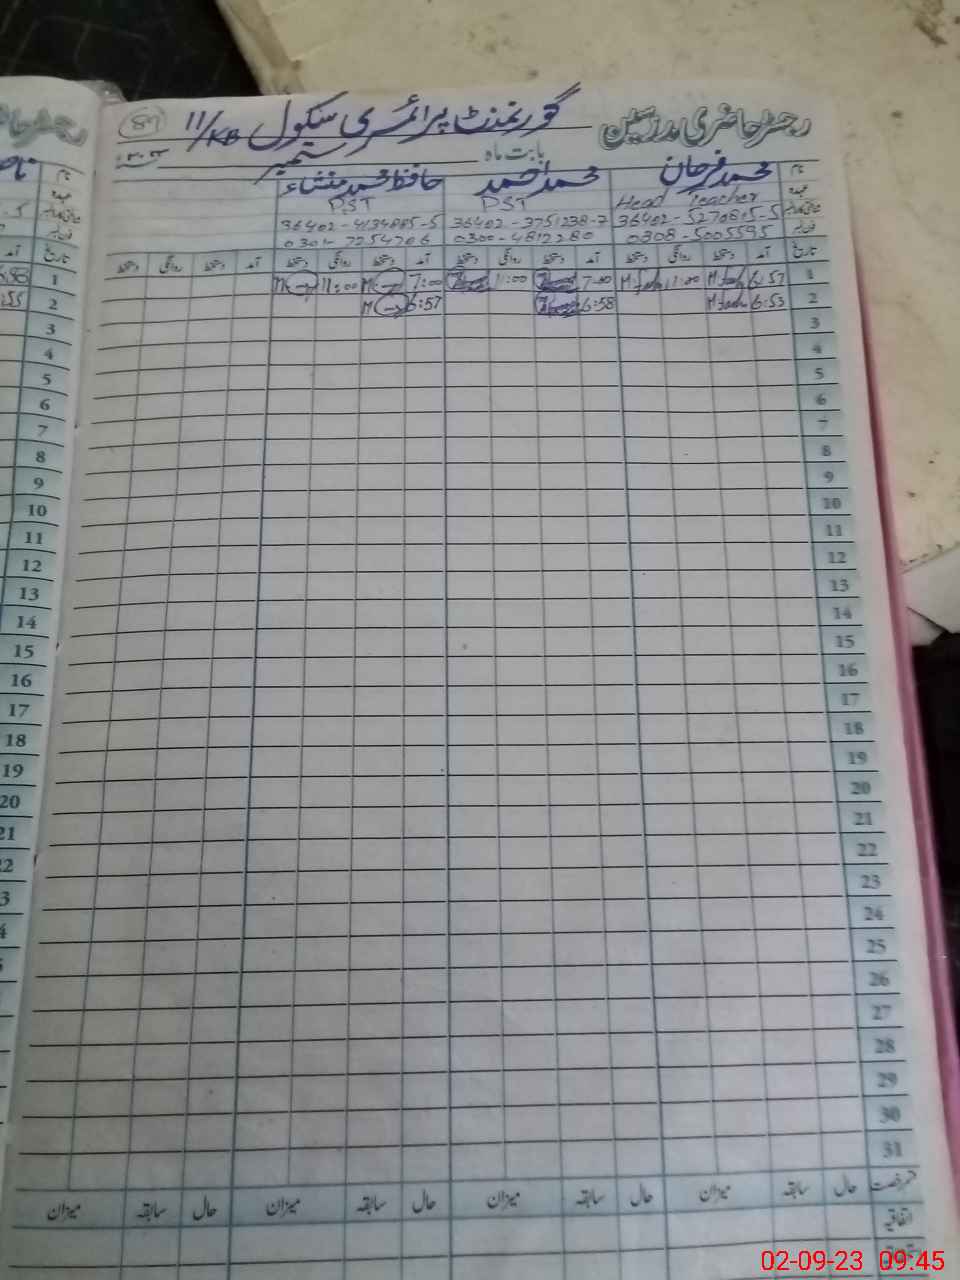 رجسٹر حاضری مدرسین گورنمنٹ پرائمری سکول 11/KB 87
بابت ماہ ستمبر
نام محمد فرحان محمد احمد حافظ محمد منشاء
عہدہ Head Teacher PST PST
36402-5270815-5 36402-3751238-7 36402-4134885-5
0308-5005595 0300-4812280 0301-7254706
تاریخ آمد دستخط روانگی دستخط آمد دستخط روانگی دستخط آمد دستخط روانگی دستخط آمد دستخط روانگی دستخط
1 6:57 11:00 7:00 11:00 7:00 11:00
2 6:53 6:58 6:57
3
4
5
6
7
8
9
10
11
12
13
14
15
16
17
18
19
20
21
22
23
24
25
26
27
28
29
30
31
حال سابقہ میزان حال سابقہ میزان حال سابقہ میزان حال سابقہ میزان
اتفاقیہ
02-09-23 09:45